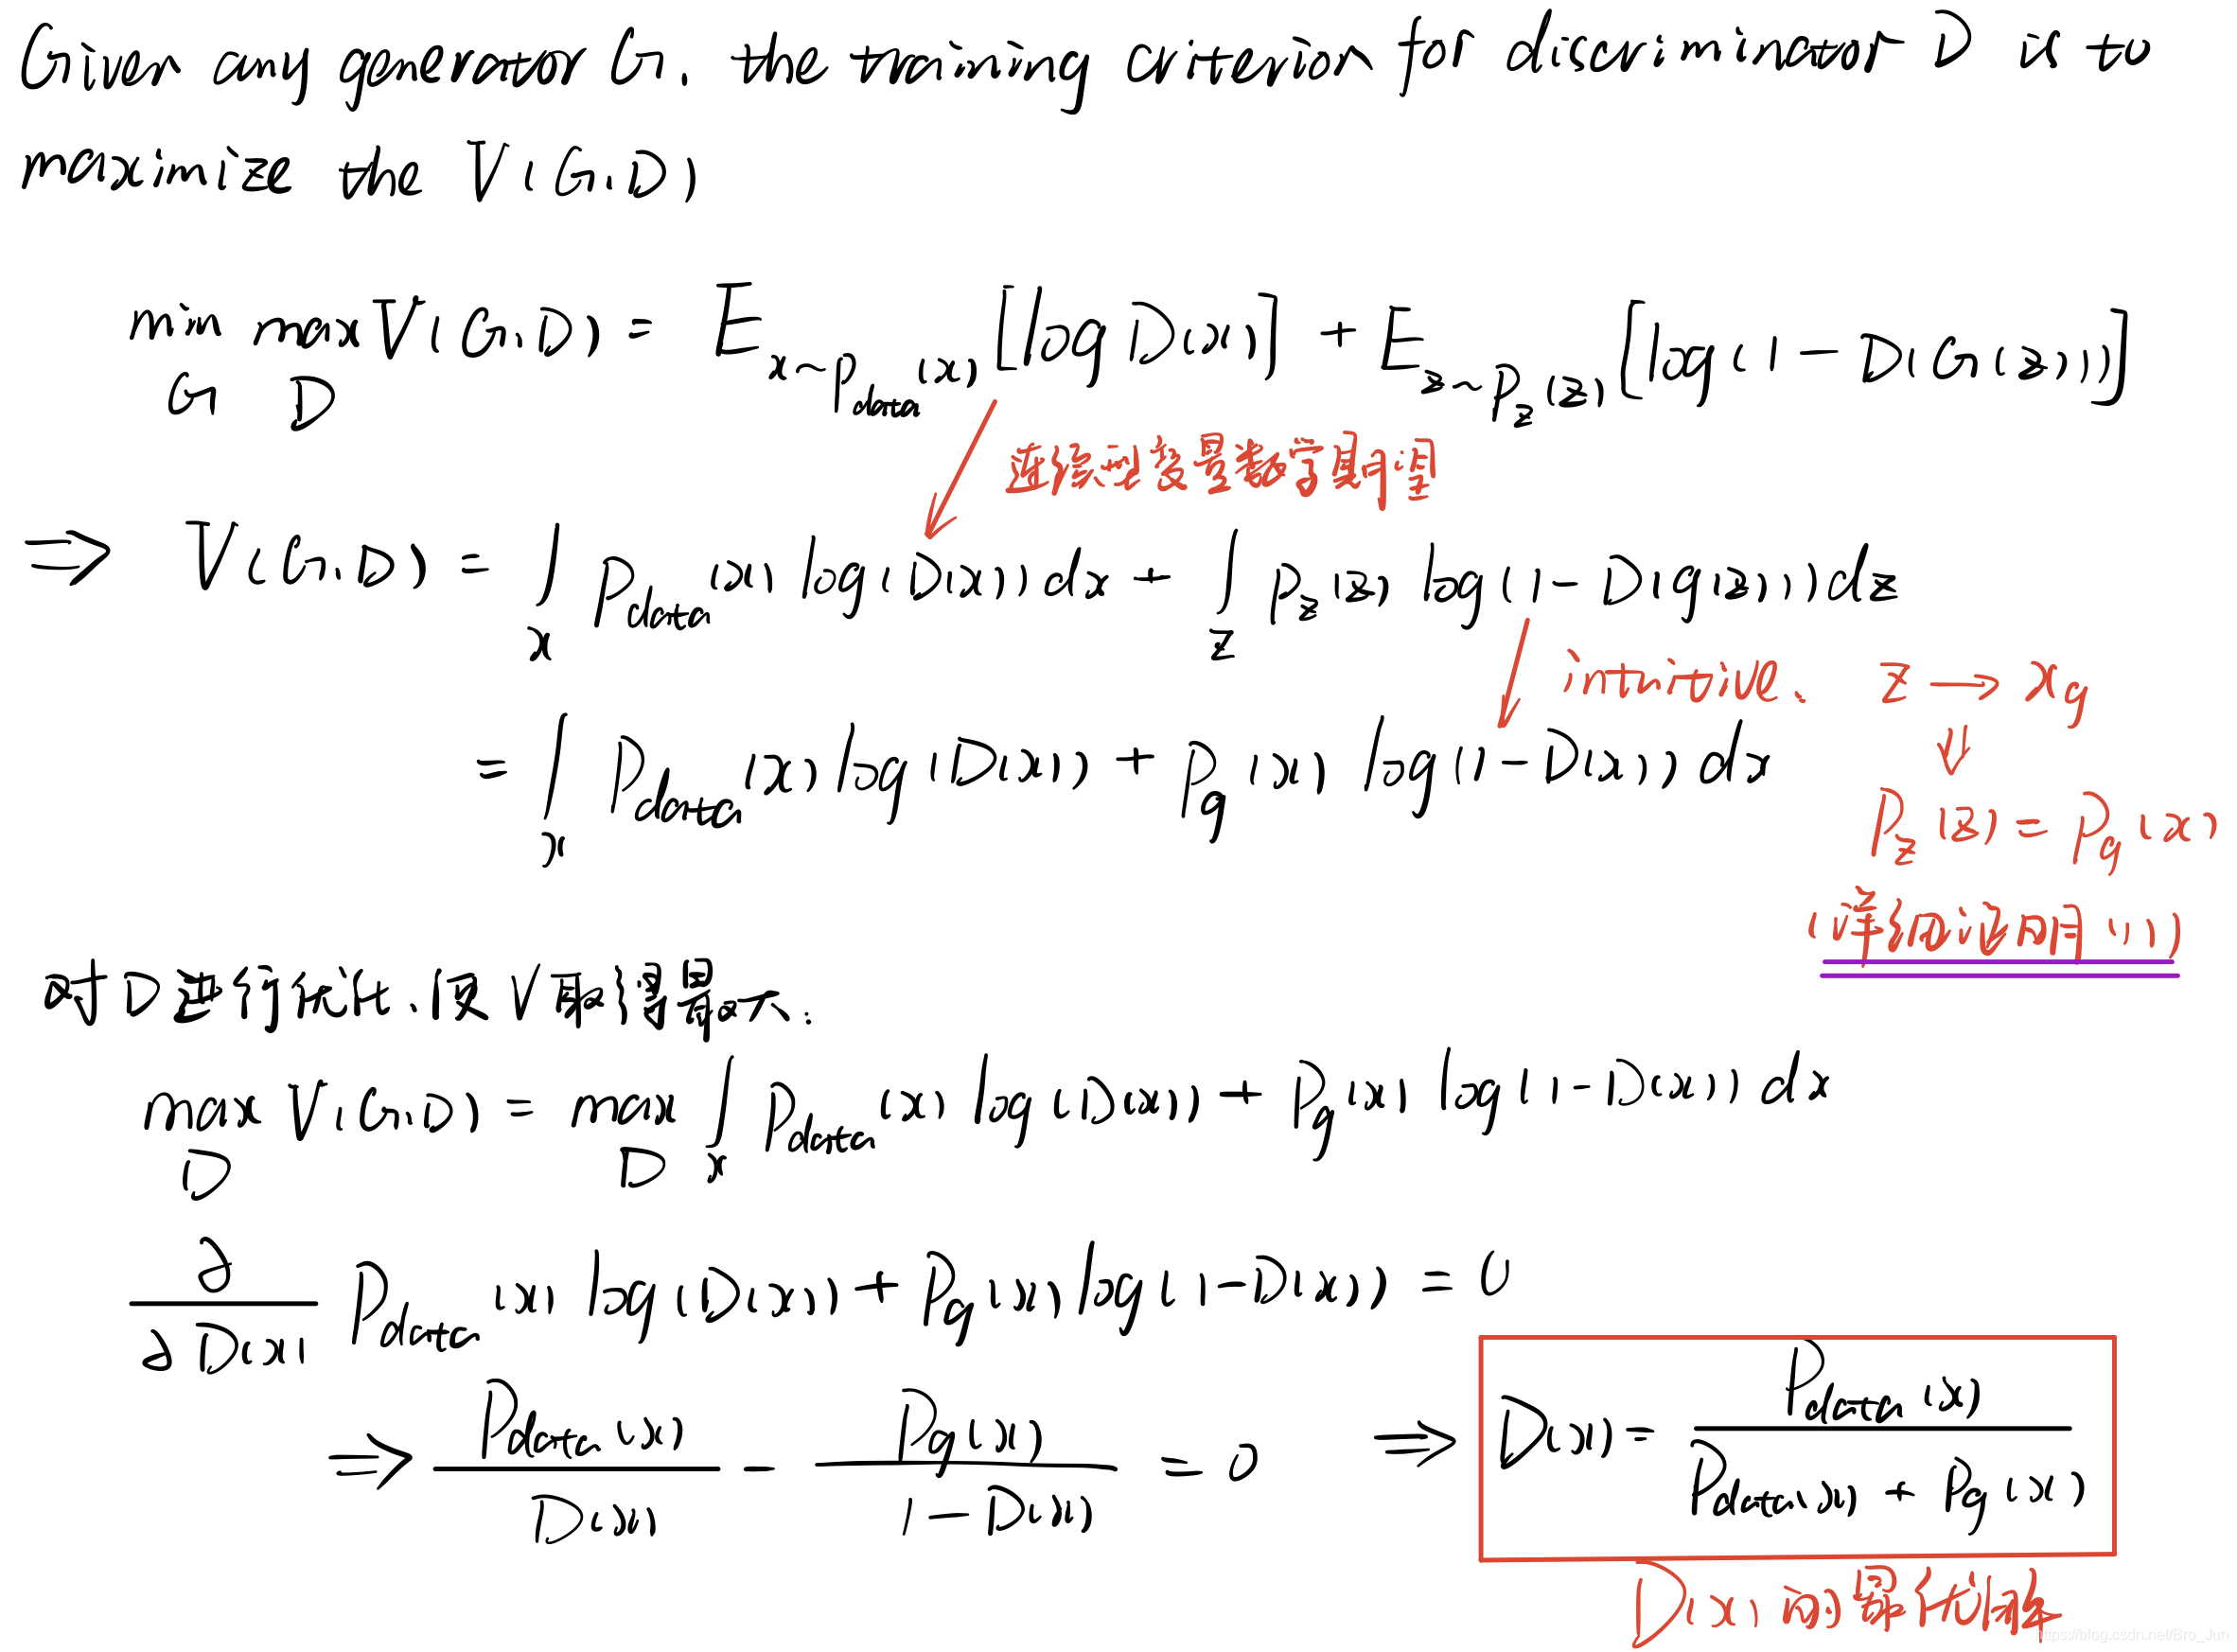 Given any generator G. the training criterion for discriminator D is to
maximize the V(G,D)
min_G max_D V(G,D) = E_{x~P_data(x)} [log D(x)] + E_{z~P_z(z)} [log(1-D(G(z)))]
连续动变量数学期望
⇒ V(G,D) = ∫_x P_data(x) log(D(x)) dx + ∫_z P_z(z) log(1-D(g(z))) dz
intuitive. z → x_g
= ∫_x P_data(x) log(D(x)) + P_g(x) log(1-D(x)) dx
↓
P_z(z) = P_g(x)
(详细证明(1))
对D进行优化,使V取得最大:
max_D V(G,D) = max_D ∫_x P_data(x) log(D(x)) + P_g(x) log(1-D(x)) dx
∂/∂D(x) P_data(x) log(D(x)) + P_g(x) log(1-D(x)) = 0
⇒ P_data(x)/D(x) - P_g(x)/(1-D(x)) = 0 ⇒ D(x) = P_data(x)/(P_data(x) + P_g(x))
D(x)的最优解
https://blog.csdn.net/Bro_Jun